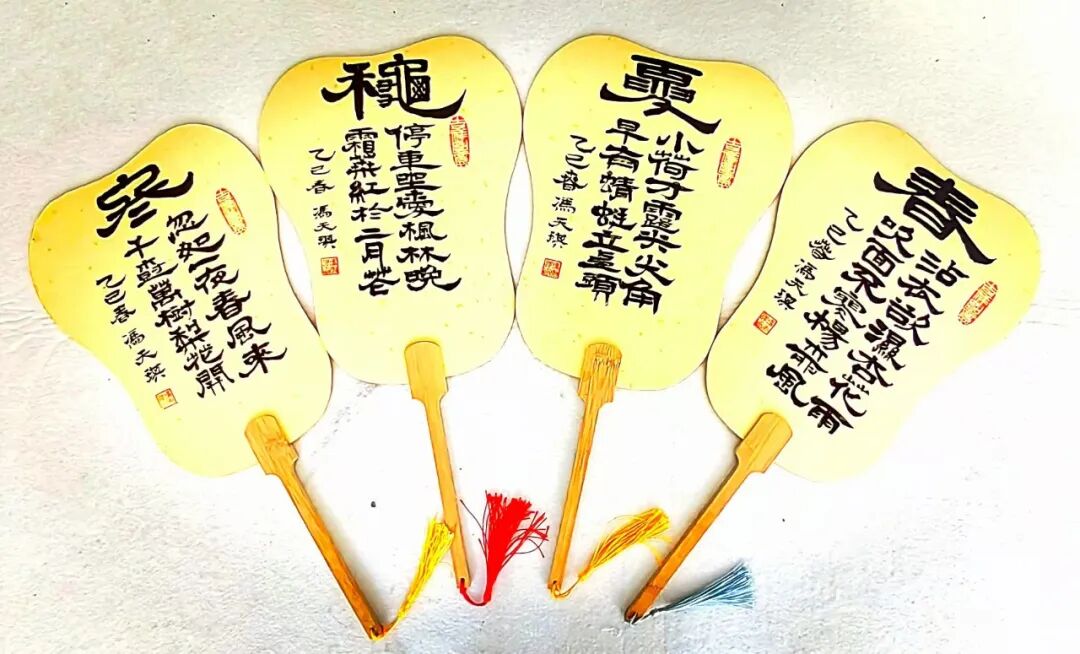 春
沾衣欲濕杏花雨
吹面不寒楊柳風
乙巳春 馮天琪
夏
小荷才露尖尖角
早有蜻蜓立上頭
乙巳春 馮天琪
龝
停車坐愛楓林晚
霜葉紅於二月花
乙巳春 馮天琪
冬
忽如一夜春風來
千樹萬樹梨花開
乙巳春 馮天琪